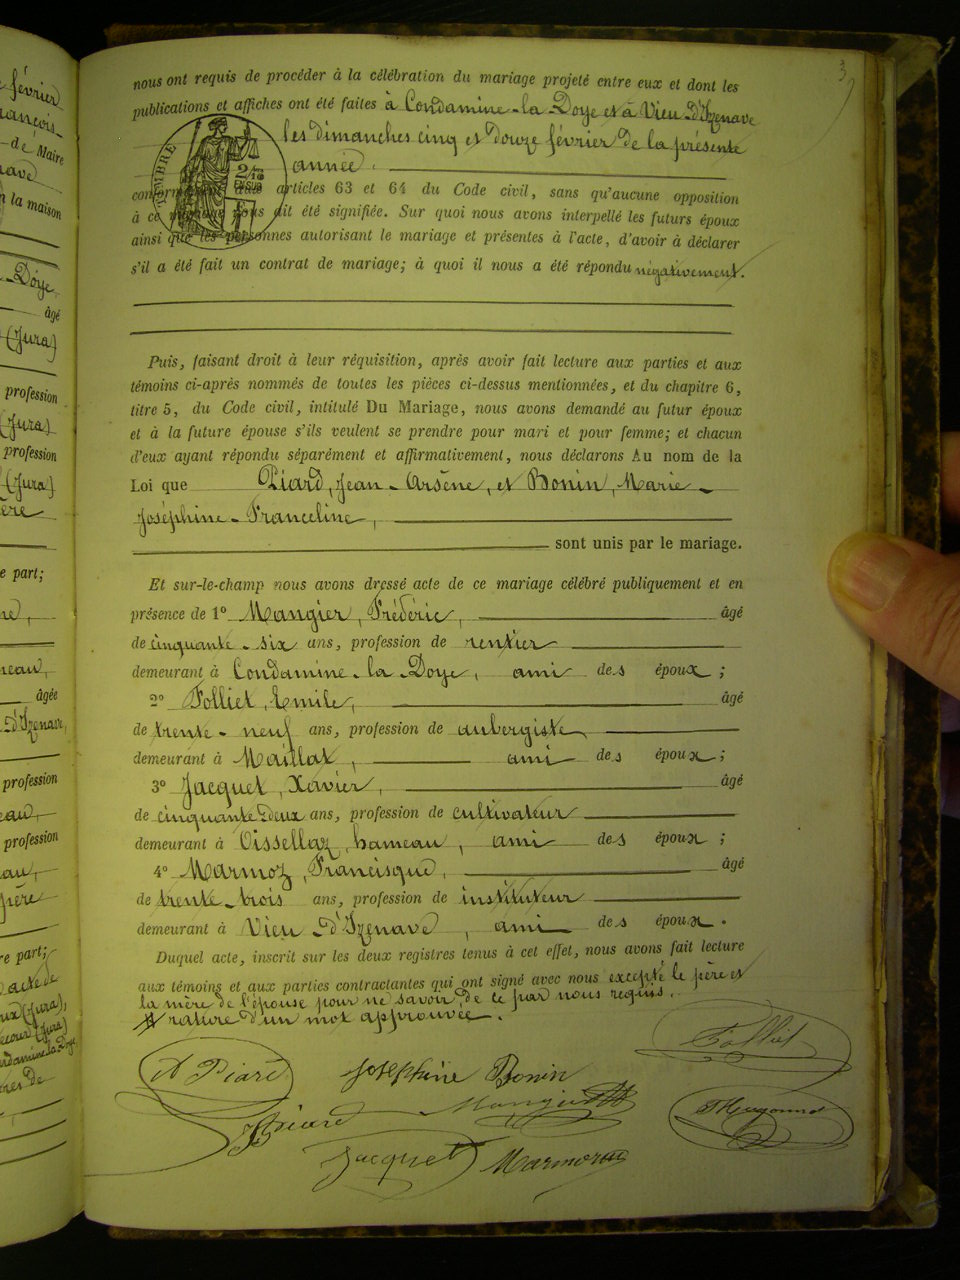 3
nous ont requis de procéder à la célébration du mariage projeté entre eux et dont les
publications et affiches ont été faites à Condamine-la Doye et à Vieu-d'Izenave
les dimanches cinq et douze février de la présente
année,
TIMBRE
conformément aux articles 63 et 64 du Code civil, sans qu'aucune opposition
à ce mariage nous ait été signifiée. Sur quoi nous avons interpellé les futurs époux
ainsi que les personnes autorisant le mariage et présentes à l'acte, d'avoir à déclarer
s'il a été fait un contrat de mariage; à quoi il nous a été répondu négativement.
Puis, faisant droit à leur réquisition, après avoir fait lecture aux parties et aux
témoins ci-après nommés de toutes les pièces ci-dessus mentionnées, et du chapitre 6,
titre 5, du Code civil, intitulé Du Mariage, nous avons demandé au futur époux
et à la future épouse s'ils veulent se prendre pour mari et pour femme; et chacun
d'eux ayant répondu séparément et affirmativement, nous déclarons Au nom de la
Loi que Piard, Jean-Arsène, et Bonin, Marie-
Joséphine-Franceline,
sont unis par le mariage.
Et sur-le-champ nous avons dressé acte de ce mariage célébré publiquement et en
présence de 1° Mangier, Frédéric, âgé
de cinquante-six ans, profession de rentier
demeurant à Condamine-la-Doye, ami des époux ;
2° Folliet, Emile, âgé
de trente-neuf ans, profession de aubergiste,
demeurant à Maillat, ami des époux ;
3° Jacquet, Xavier, âgé
de cinquante-deux ans, profession de cultivateur
demeurant à Oissellaz, hameau, ami des époux ;
4° Marmoz, Francisque, âgé
de trente-trois ans, profession de instituteur
demeurant à Vieu-d'Izenave, ami des époux.
Duquel acte, inscrit sur les deux registres tenus à cet effet, nous avons fait lecture
aux témoins et aux parties contractantes qui ont signé avec nous excepté le père et
la mère de l'épouse pour ne savoir, de ce par nous requis.
rature d'un mot approuvée.
Folliet
A Piard
Joséphine Bonin
Mangier
Piard
Jacquet
février
de Maire
la maison
Doye,
âgé
(Jura)
profession
(Jura)
profession
(Jura)
père
part;
âgée
d'Izenave,
profession
profession
père
re part;
acte de
(Jura),
(Jura)